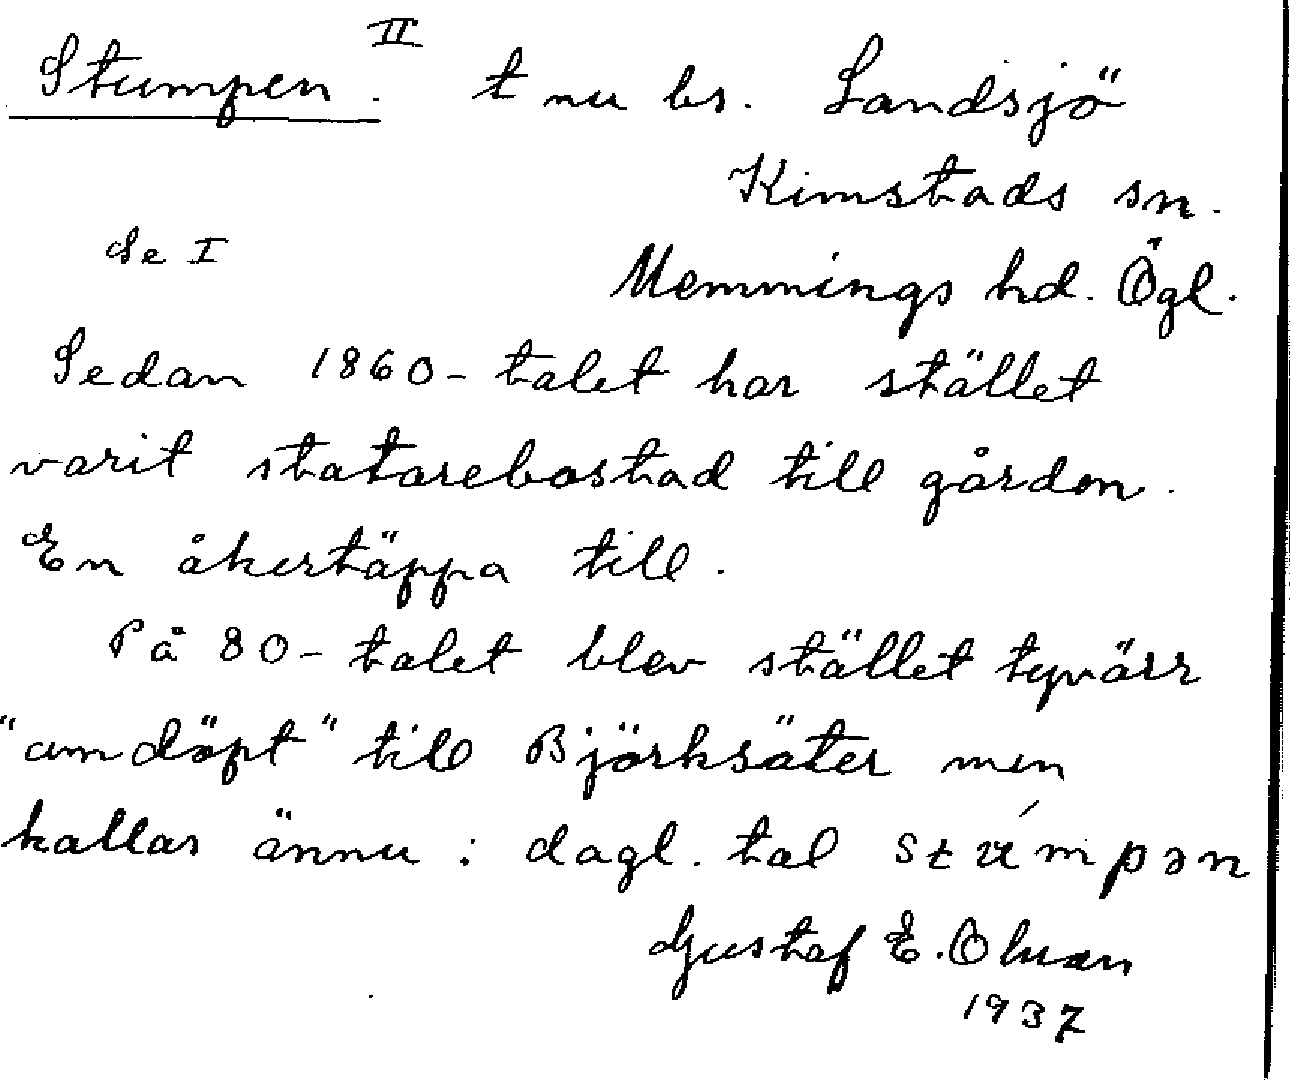 Stumpen. II t nu bs. Landsjö
Kimstads sn.
Se I
Memmings hd. Ögl.
Sedan 1860-talet har stället
varit statarebostad till gården.
En åkertäppa till.
På 80-talet blev stället tyvärr
"omdöpt" till Björksäter men
kallas ännu i dagl. tal stúmpən
Gustaf E. Olsson
1937